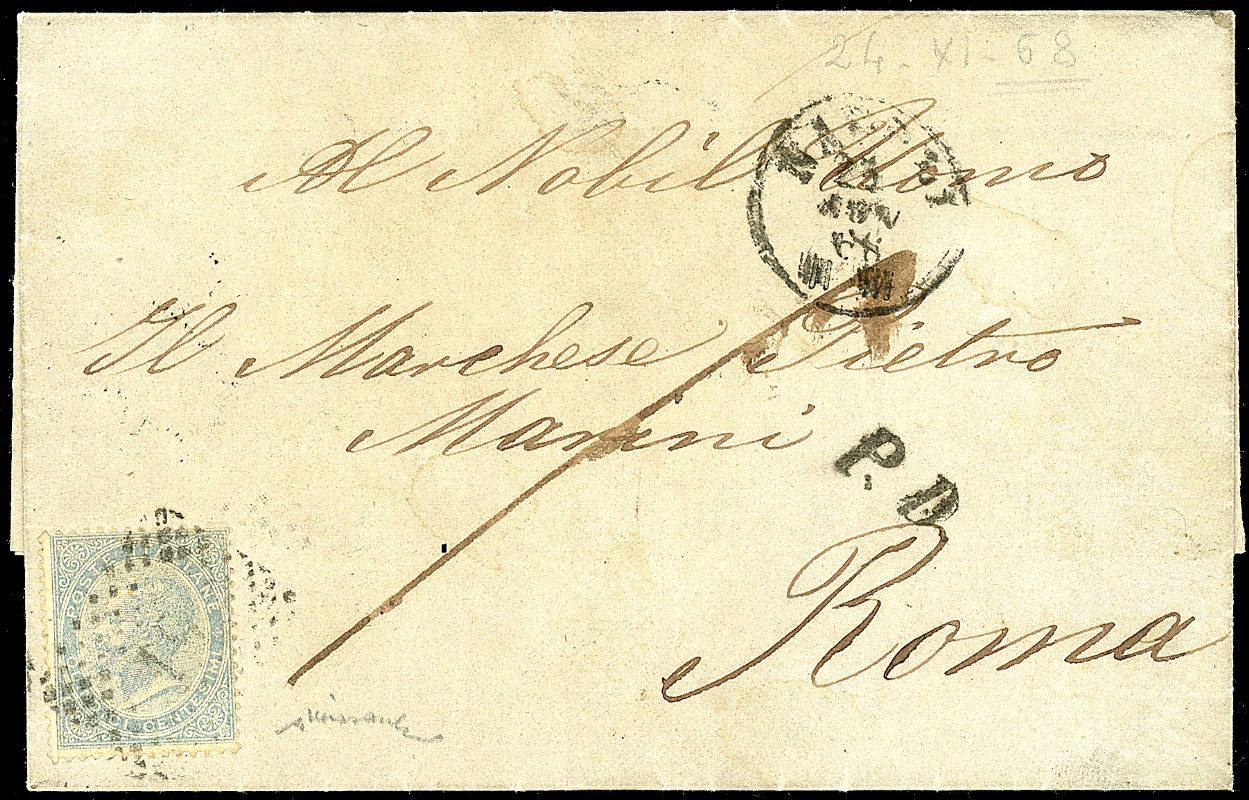 24-XI-68
Al Nobil Uomo
Il Marchese Pietro
Marini
P. D
Roma
POSTE ITALIANE
QUINDICI CENTESIMI